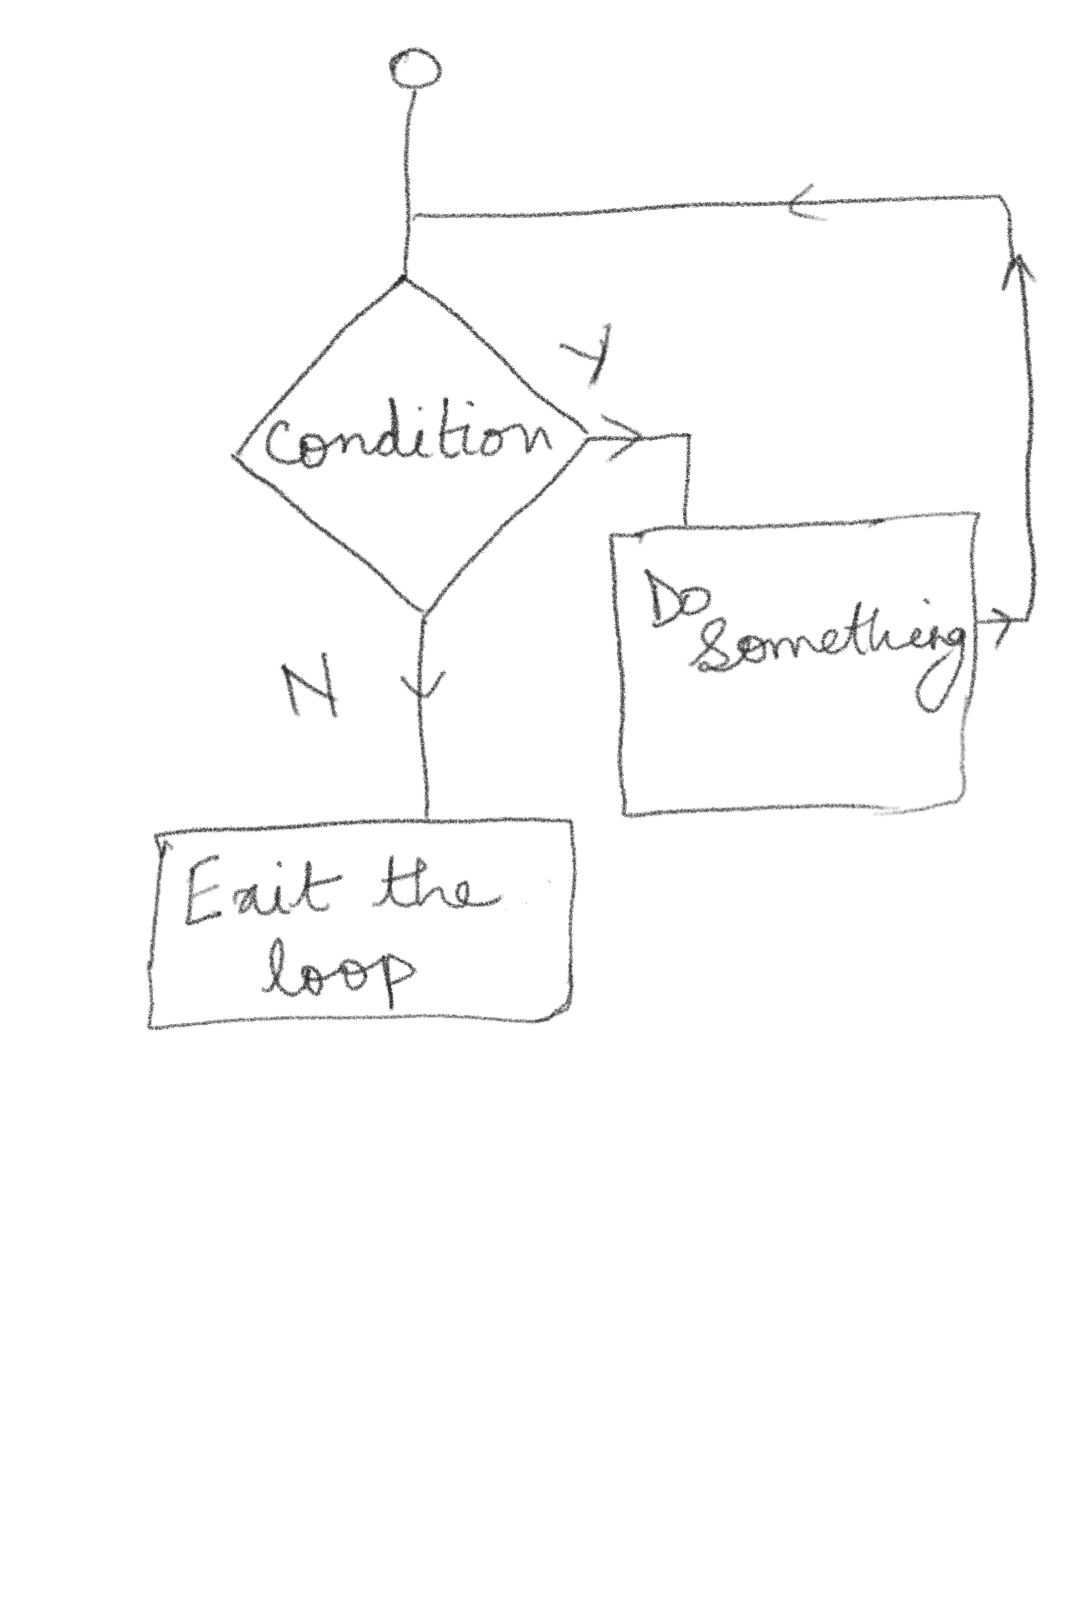 Y
Condition
Do
Something
N
Exit the
loop